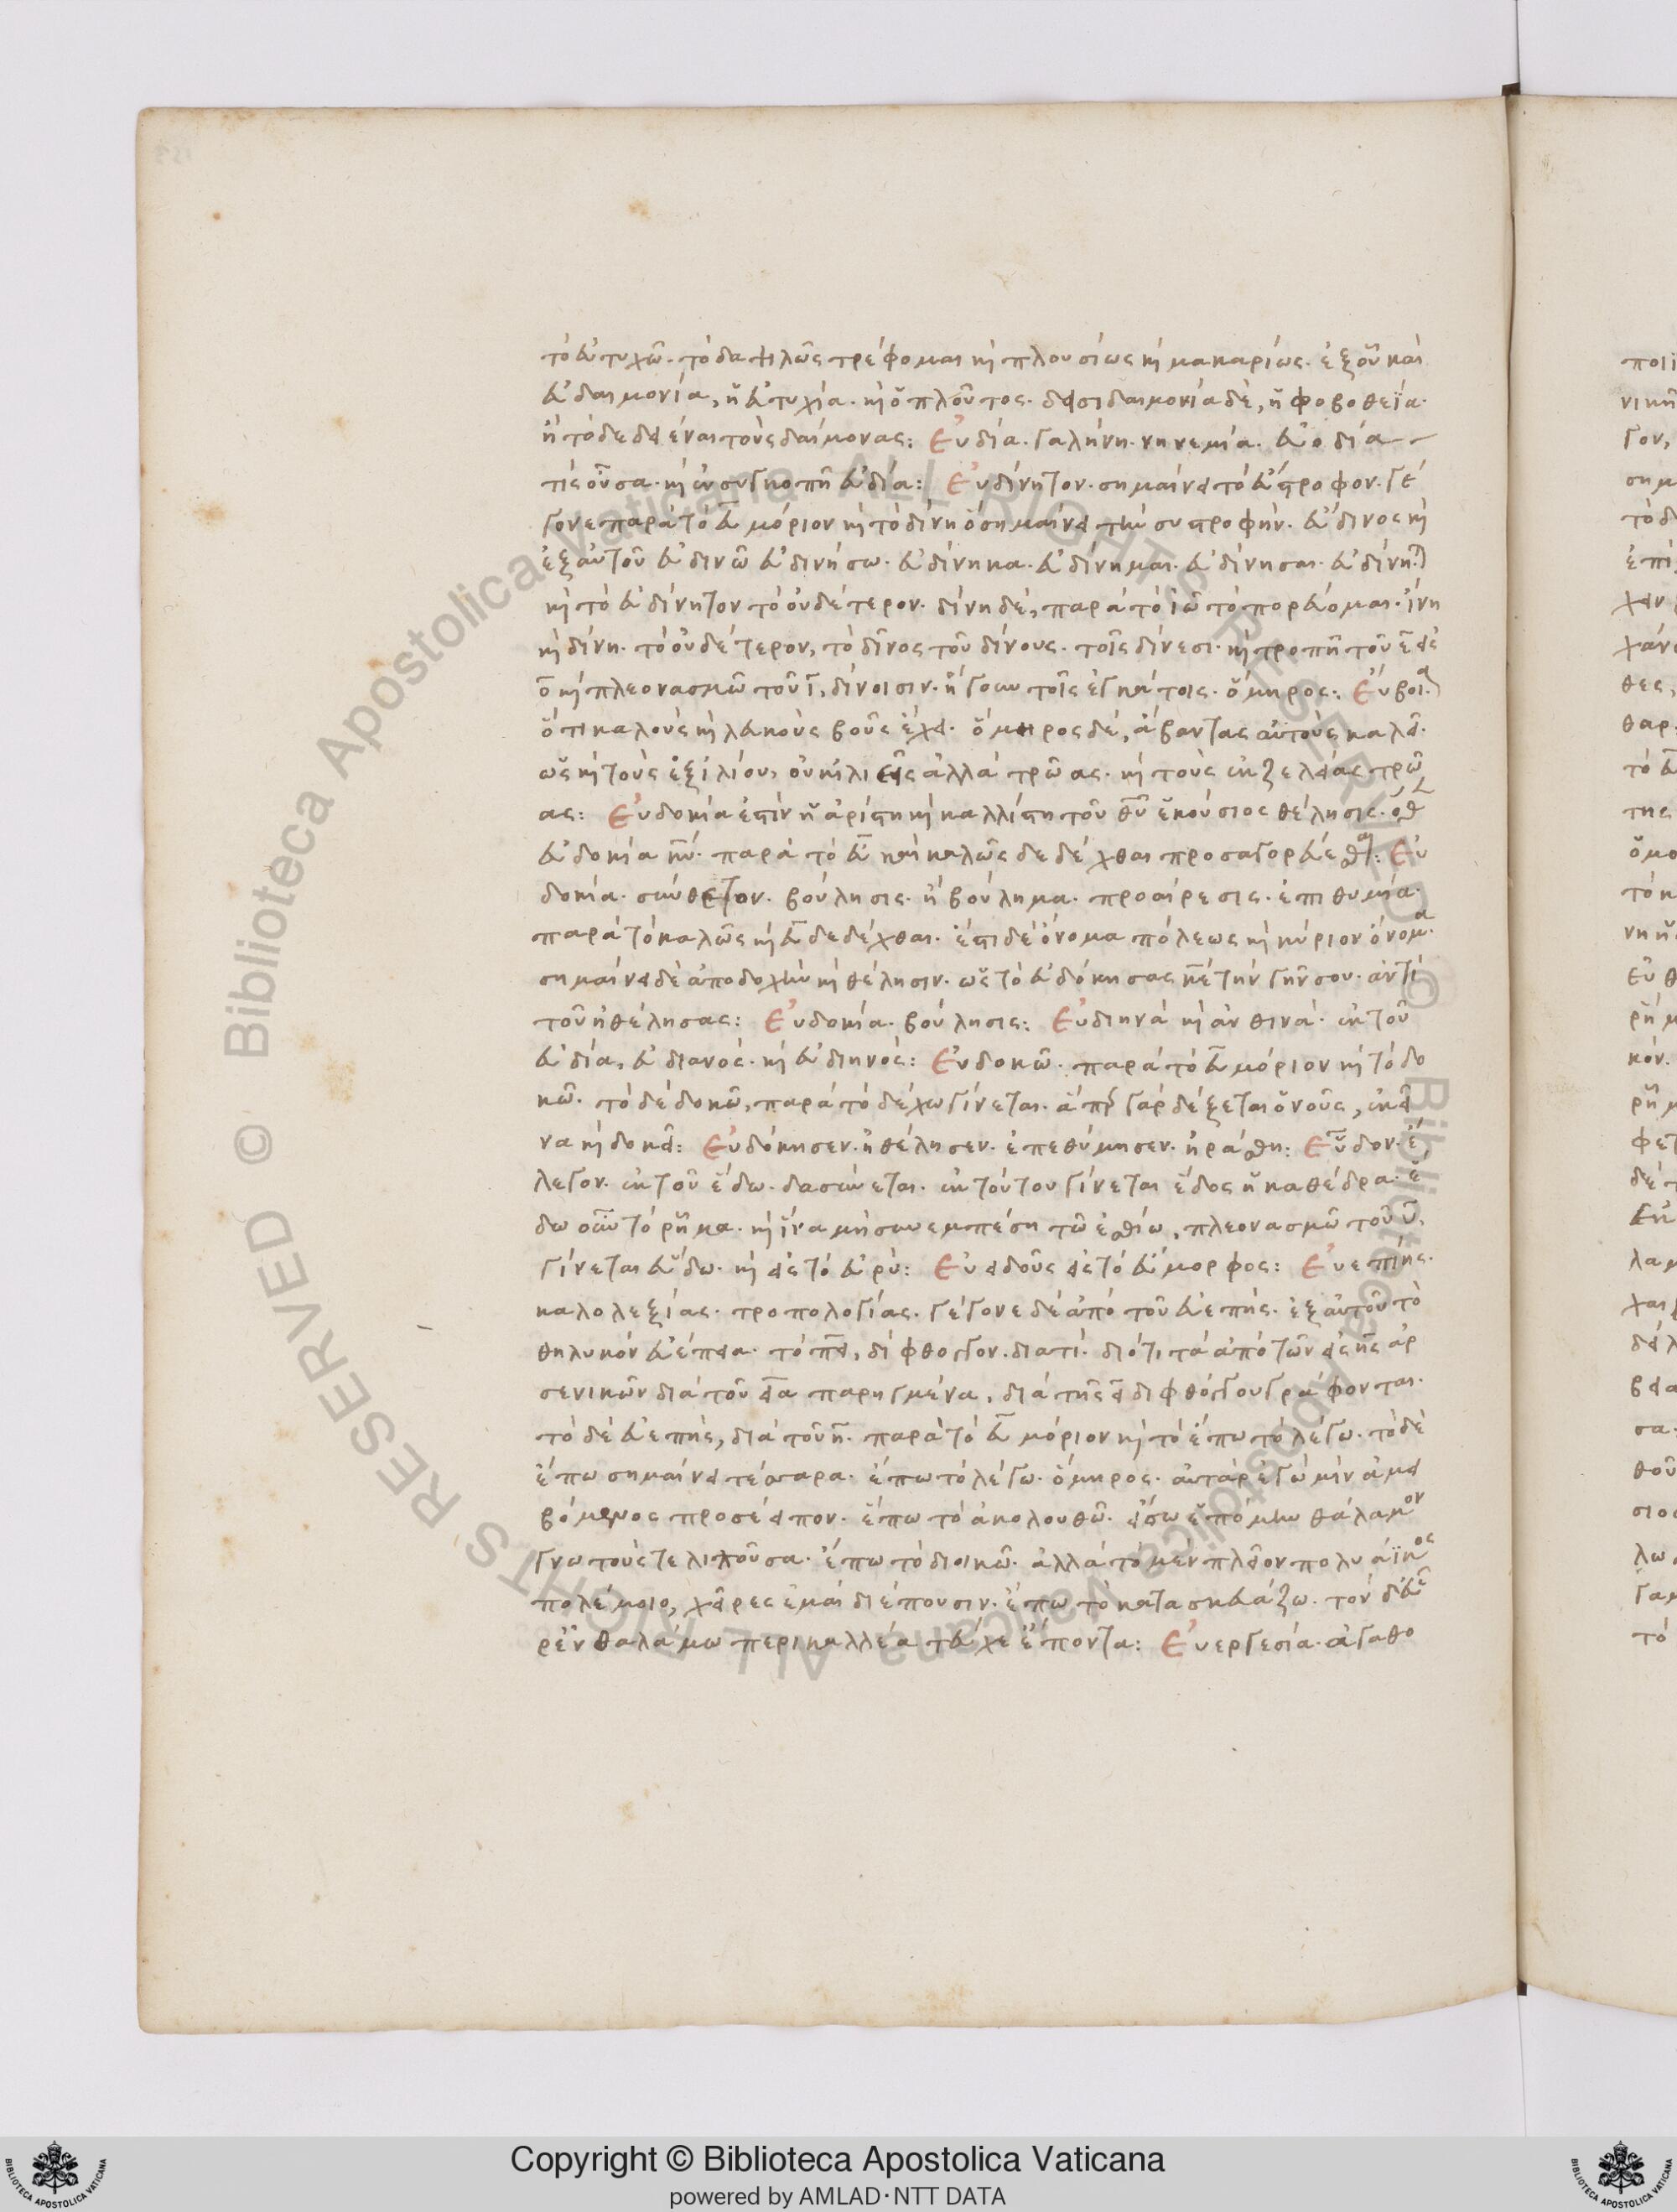 τὸ εὐτυχῶ· τὸ δαψιλῶς τρέφομαι κὶ πλουσίως κὶ μακαρίως· ἐξ οὗ καὶ
εὐδαιμονία, ἡ εὐτυχία· κὶ ὁ πλοῦτος· δεισιδαιμονία δὲ, ἡ φοβοθεΐα·
ἢ τὸ δεδιέναι τοὺς δαίμονας: Εὐδία· γαλήνη· νηνεμία· εὐοδία
τίς οὖσα· κὶ ἐν συγκοπῇ εὐδία: Εὐδίνητον· σημαίνει τὸ εὔστροφον· γέ
γονε παρὰ τὸ εὖ μόριον κὶ τὸ δίνη ὃ σημαίνει τὴν συστροφήν· εὔδινος κὶ
ἐξ αὐτοῦ εὐδινῶ εὐδινήσω· εὐδίνηκα· εὐδίνημαι· εὐδίνησαι· εὐδίνηται
κὶ τὸ εὐδίνητον τὸ οὐδέτερον· δίνη δέ, παρὰ τὸ ἰῶ τὸ πορεύομαι· ἴνη
κὶ δίνη· τὸ οὐδέτερον, τὸ δῖνος τοῦ δίνους· τοῖς δίνεσι· κὶ τροπῇ τοῦ ε εἰς
ο κὶ πλεονασμῶ τοῦ ι, δίνοισιν· ἤγουν τοῖς ἐγκάτοις· ὅμηρος: Εὔβοια
ὅτι καλοὺς κὶ λευκοὺς βοῦς ἔχει· ὅμηρος δέ, ἄβαντας αὐτοὺς καλεῖ·
ὡς κὶ τοὺς ἐξ ἰλίου, οὐκ ἰλιεῖς ἀλλὰ τρῶας· κὶ τοὺς ἐκ ζελείας τρῶ
ας: Εὐδοκία ἐστὶν ἡ ἀρίστη κὶ καλλίστη τοῦ θυ ἑκούσιος θέλησις· ὅθεν
εὐδοκία κυ· παρὰ τὸ εὖ καὶ καλῶς δεδέχθαι προσαγορεύεσθαι: Εὐ
δοκία· σύνθετον· βούλησις· ἢ βούλημα· προαίρεσις· ἐπιθυμία·
παρὰ τὸ καλῶς κὶ εὖ δεδέχθαι· ἔστι δὲ ὄνομα πόλεως κὶ κύριον ὄνομα·
σημαίνει δὲ ἀποδοχὴν κὶ θέλησιν· ὡς τὸ εὐδόκησας κε τὴν γῆν σου· ἀντὶ
τοῦ ἠθέλησας: Εὐδοκία· βούλησις: Εὐδιηνά κὶ ἀνθινά· ἐκ τοῦ
εὐδία, εὐδιανός· κὶ εὐδιηνός: Εὐδοκῶ· παρὰ τὸ εὖ μόριον κὶ τὸ δο
κῶ· τὸ δὲ δοκῶ, παρὰ τὸ δέχω γίνεται· ἅπερ γὰρ δέξεται ὁ νοῦς, ἐκεῖ
να κὶ δοκεῖ: Εὐδόκησεν· ἠθέλησεν· ἐπεθύμησεν· ἠράσθη: Εὗδον· ἔ
λεγον· ἐκ τοῦ ἕδω· δασύνεται· ἐκ τούτου γίνεται ἕδος ἡ καθέδρα· ἕ
δω οὖν τὸ ρῆμα· κὶ ἵνα μὴ συνεμπέση τῶ ἐσθίω, πλεονασμῶ τοῦ υ,
γίνεται εὕδω· κὶ εἰς τὸ εὐρύ: Εὐειδοῦς εἰς τὸ εὔμορφος: Εὐεπίης·
καλολεξίας· τροπολογίας· γέγονε δὲ ἀπὸ τοῦ εὐεπής· ἐξ αὐτοῦ τὸ
θηλυκόν εὐέπεια· τὸ πει, δίφθογγον· διατί· διότι τὰ ἀπὸ τῶν εἰς ης ἀρ
σενικῶν διὰ τοῦ εια παρηγμένα, διὰ τῆς ει διφθόγγου γράφονται·
τὸ δὲ εὐεπής, διὰ τοῦ η· παρὰ τὸ εὖ μόριον κὶ τὸ ἔπω τὸ λέγω· τὸ δὲ
ἔπω σημαίνει τέσσαρα· ἔπω τὸ λέγω· ὅμηρος· αὐτὰρ ἐγώ μιν ἀμει
βόμενος προσέειπον· ἕπω τὸ ἀκολουθῶ· εἴσω ἑπόμην θάλαμον
γνωτούς τε λιποῦσα· ἕπω τὸ διοικῶ· ἀλλὰ τὸ μὲν πλεῖον πολυάϊκος
πολέμοιο, χεῖρες ἐμαὶ διέπουσιν· ἕπω τὸ κατασκευάζω· τὸν δ' εὗ
ρεν θαλάμω περικαλλέα τεύχε' ἕποντα: Εὐεργεσία· ἀγαθο